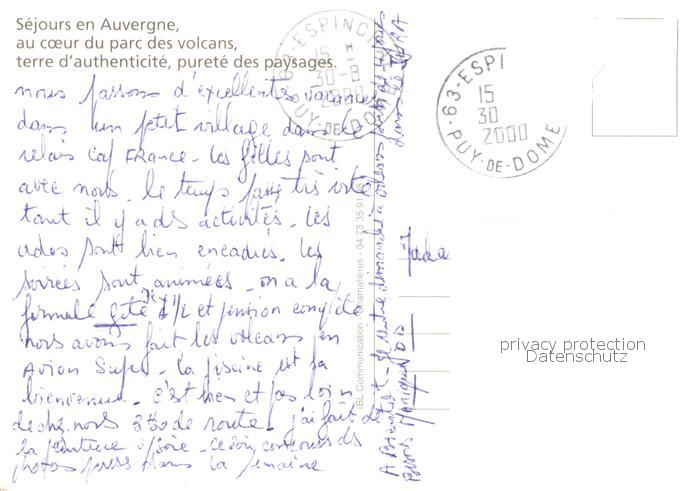 Séjours en Auvergne,
au cœur du parc des volcans,
terre d'authenticité, pureté des paysages.
nous passons d'excellentes vacances
dans un petit village dans le
relais Cap FRANCE. Les filles sont
avec nous. le temps passe très vite
tant il y a des activités. Les
ados sont bien encadrés. les
soirées sont animées. on a la
formule gîte et pension complète
nous avons fait les volcans en
Avion Super. La piscine est la
bienvenue. c'est bien et pas loin
de chez nous 3h30 de route. j'ai fait de
la peinture s/soie. ce soir concours ds
photos dans la semaine
A Bientôt.
Bisous Monique
63-ESPINCH
15 H
30-8
2000
PUY-DE-DOME
IBL Communication Chamalières - 04 73 35 91
63-ESPI
15
30
2000
PUY-DE-DOME
privacy protection
Datenschutz